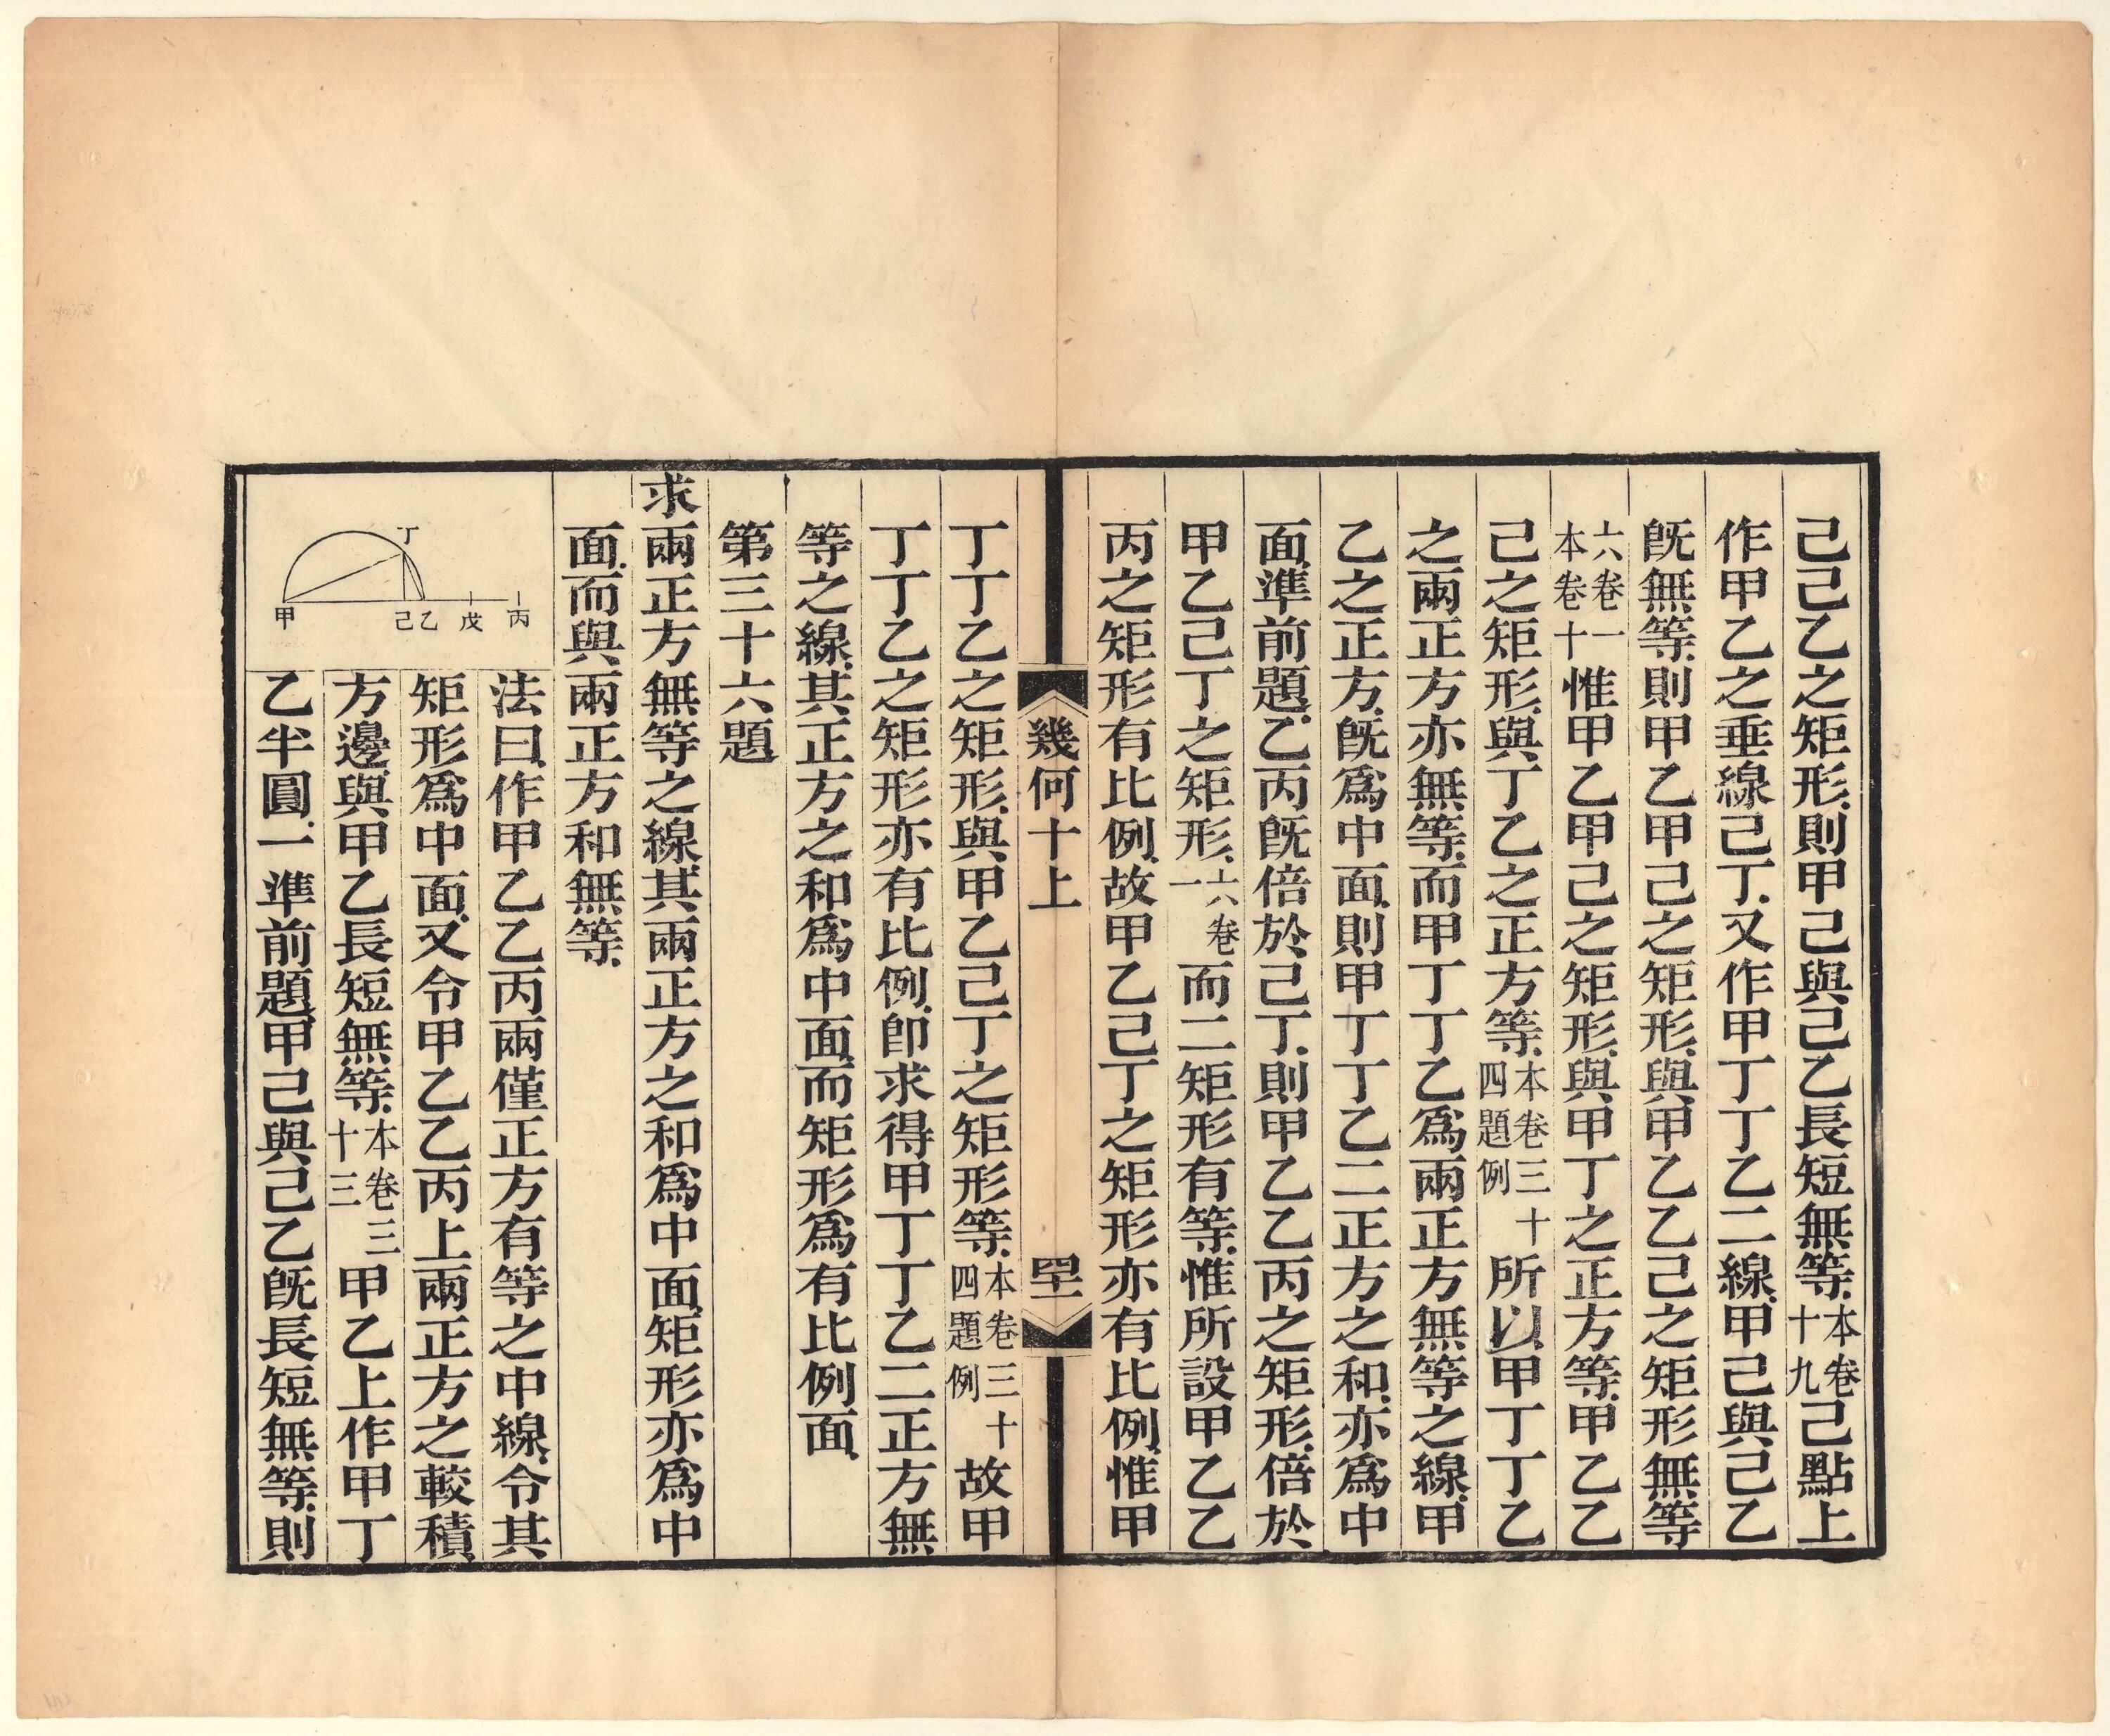 己己乙之矩形則甲己與己乙長短無等本卷十九己點上
作甲乙之垂線己丁又作甲丁丁乙二線甲己與己乙
旣無等則甲乙甲己之矩形與甲乙乙己之矩形無等
六卷一本卷十惟甲乙甲己之矩形與甲丁之正方等甲乙乙
己之矩形與丁乙之正方等本卷三十四題例所以甲丁丁乙
之兩正方亦無等而甲丁丁乙爲兩正方無等之線甲
乙之正方旣爲中面則甲丁丁乙二正方之和亦爲中
面準前題乙丙旣倍於己丁則甲乙乙丙之矩形倍於
甲乙己丁之矩形六卷一而二矩形有等惟所設甲乙乙
丙之矩形有比例故甲乙己丁之矩形亦有比例惟甲
幾何十上 四十一
丁丁乙之矩形與甲乙己丁之矩形等本卷三十四題例故甲
丁丁乙之矩形亦有比例卽求得甲丁丁乙二正方無
等之線其正方之和爲中面而矩形爲有比例面
第三十六題
求兩正方無等之線其兩正方之和爲中面矩形亦爲中
面而與兩正方和無等
丁
甲 己 乙 戊 丙
法曰作甲乙乙丙兩僅正方有等之中線令其
矩形爲中面又令甲乙乙丙上兩正方之較積
方邊與甲乙長短無等本卷三十三甲乙上作甲丁
乙半圓一準前題甲己與己乙旣長短無等則